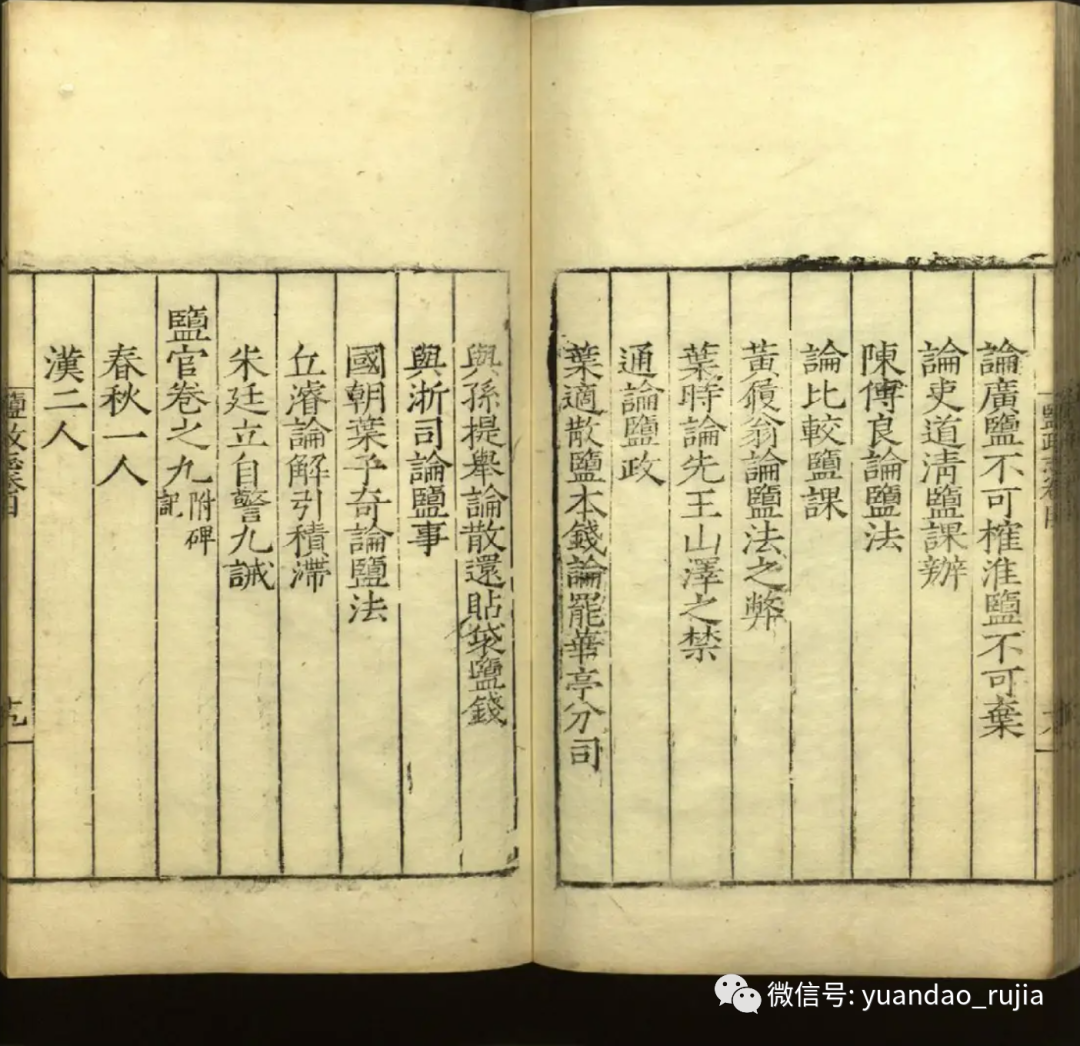 論廣鹽不可榷淮鹽不可棄
論吏道淸鹽課辦
陳傅良論鹽法
論比較鹽課
黃履翁論鹽法之弊
葉時論先王山澤之禁
通論鹽政
葉適散鹽本錢論罷華亭分司
與孫提舉論散還貼袋鹽錢
與浙司論鹽事
國朝葉子奇論鹽法
丘濬論解引積滯
朱廷立自警九誡
鹽官卷之九附碑記
春秋一人
漢二人
微信号: yuandao_rujia